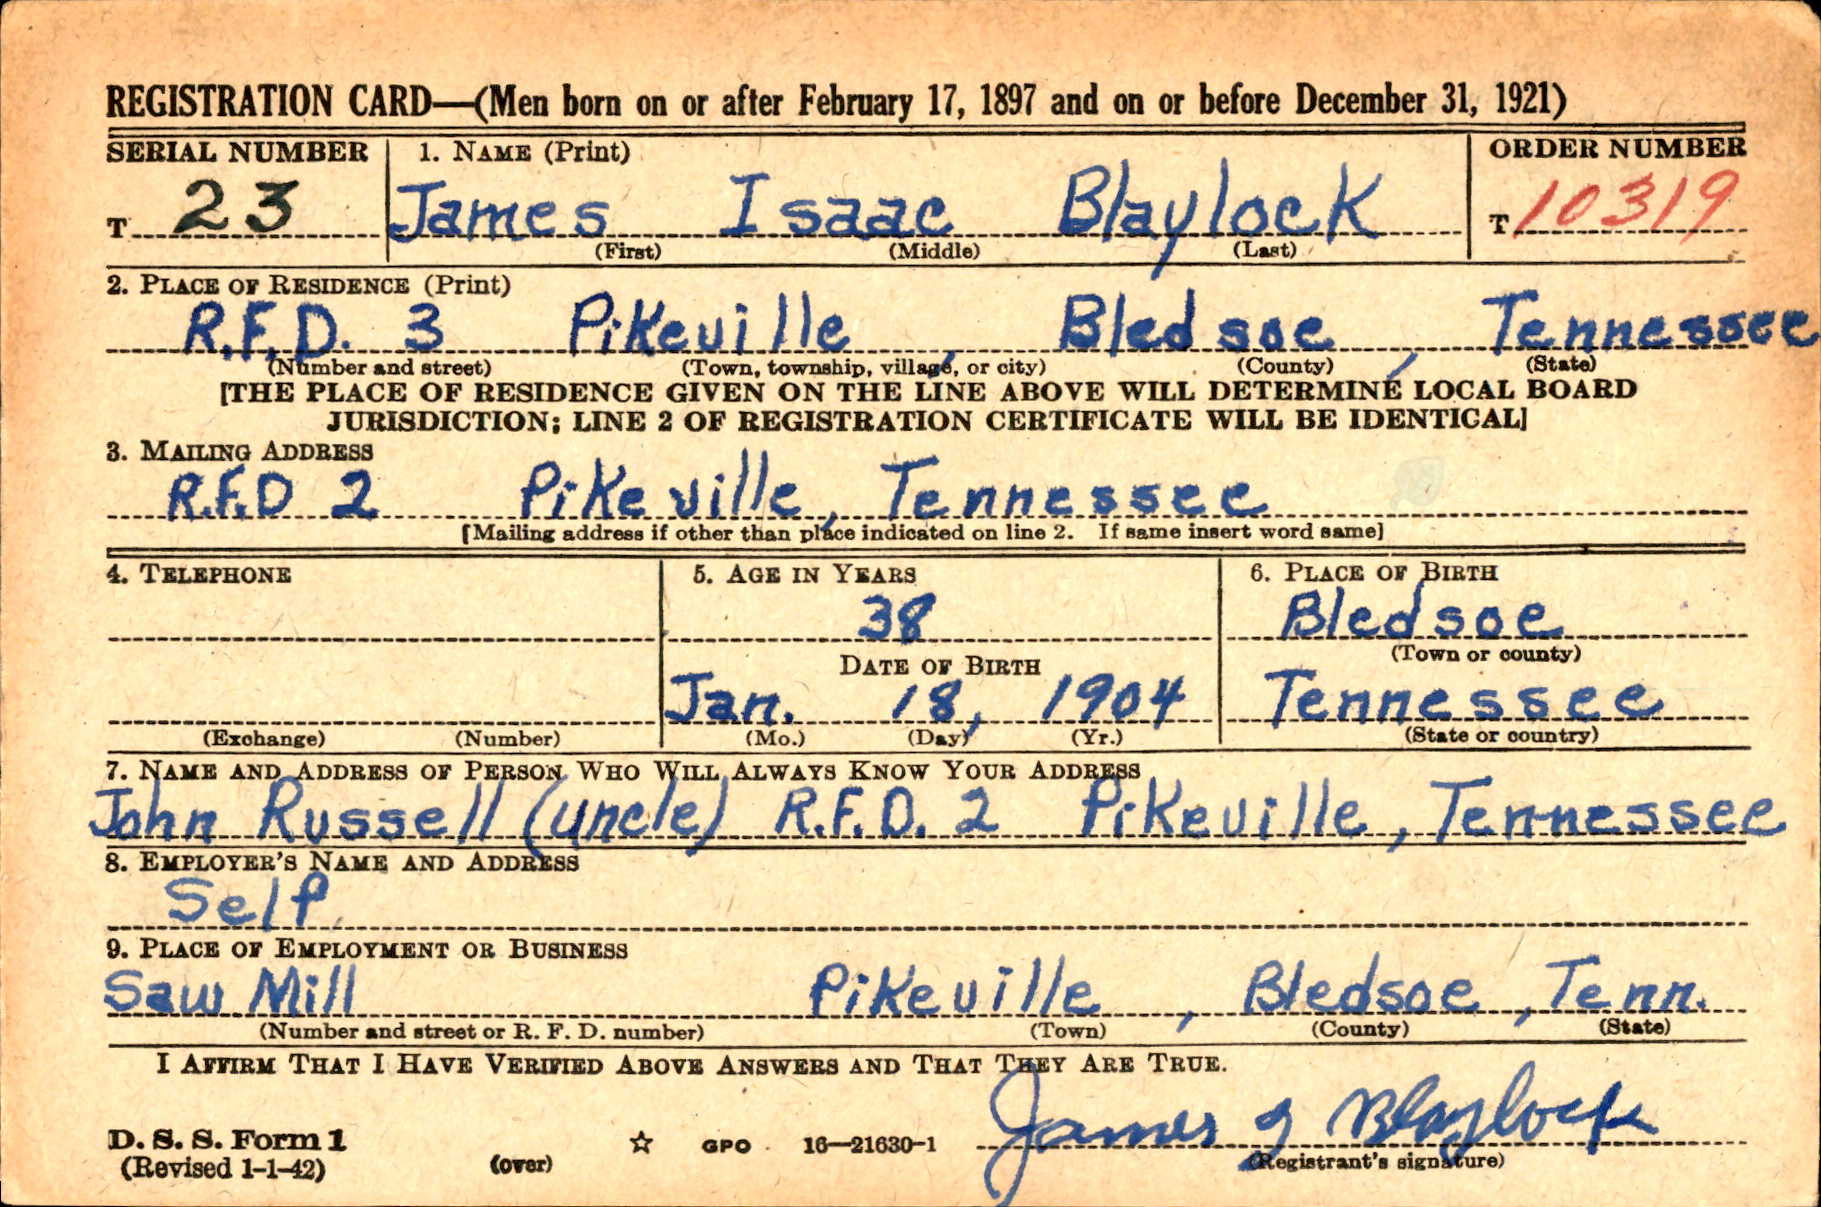 REGISTRATION CARD—(Men born on or after February 17, 1897 and on or before December 31, 1921)
SERIAL NUMBER 1. NAME (Print) ORDER NUMBER
T 23 James Isaac Blaylock T 10319
(First) (Middle) (Last)
2. PLACE OF RESIDENCE (Print)
R.F.D. 3 Pikeville, Bledsoe, Tennessee
(Number and street) (Town, township, village, or city) (County) (State)
[THE PLACE OF RESIDENCE GIVEN ON THE LINE ABOVE WILL DETERMINE LOCAL BOARD
JURISDICTION; LINE 2 OF REGISTRATION CERTIFICATE WILL BE IDENTICAL]
3. MAILING ADDRESS
R.F.D 2 Pikeville, Tennessee
[Mailing address if other than place indicated on line 2. If same insert word same]
4. TELEPHONE 5. AGE IN YEARS 6. PLACE OF BIRTH
38 Bledsoe
DATE OF BIRTH (Town or county)
Jan. 18, 1904 Tennessee
(Exchange) (Number) (Mo.) (Day) (Yr.) (State or country)
7. NAME AND ADDRESS OF PERSON WHO WILL ALWAYS KNOW YOUR ADDRESS
John Russell (uncle) R.F.D. 2 Pikeville, Tennessee
8. EMPLOYER'S NAME AND ADDRESS
Self
9. PLACE OF EMPLOYMENT OR BUSINESS
Saw Mill Pikeville, Bledsoe, Tenn.
(Number and street or R. F. D. number) (Town) (County) (State)
I AFFIRM THAT I HAVE VERIFIED ABOVE ANSWERS AND THAT THEY ARE TRUE.
James I Blaylock
D. S. S. Form 1 ☆ GPO 16—21630-1
(Revised 1-1-42) (over) (Registrant's signature)